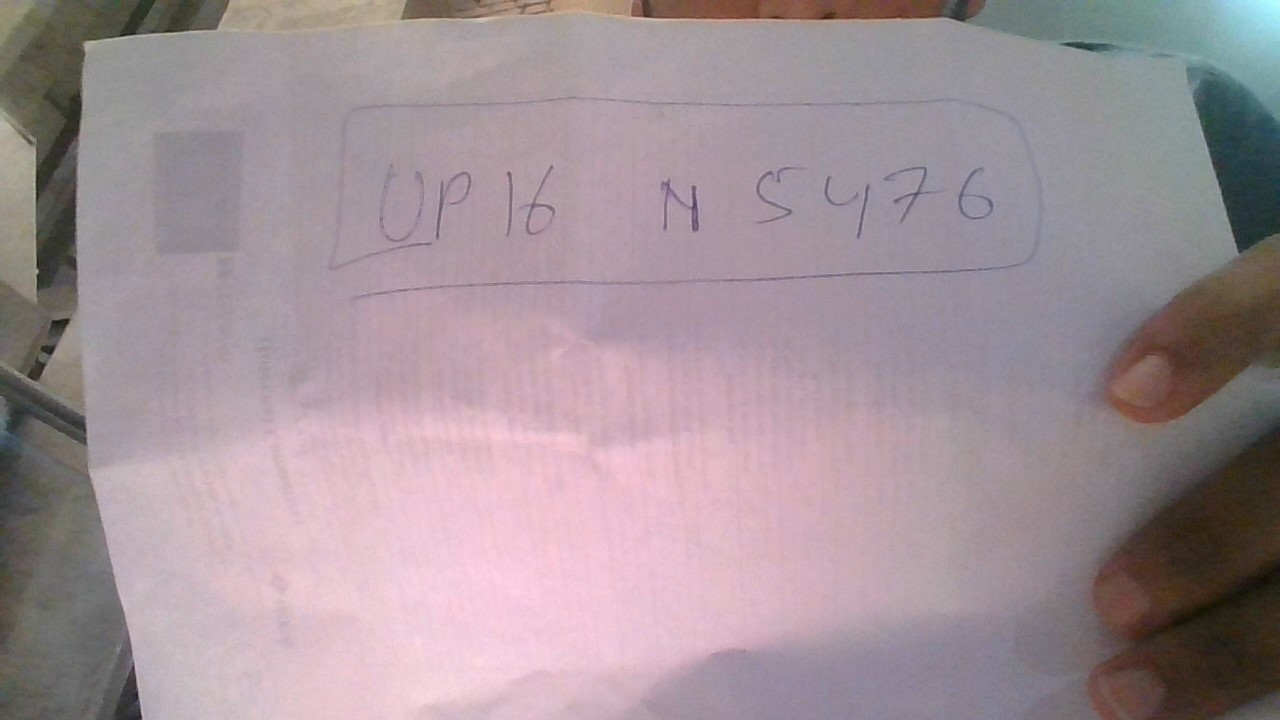 UP 16 N 5476